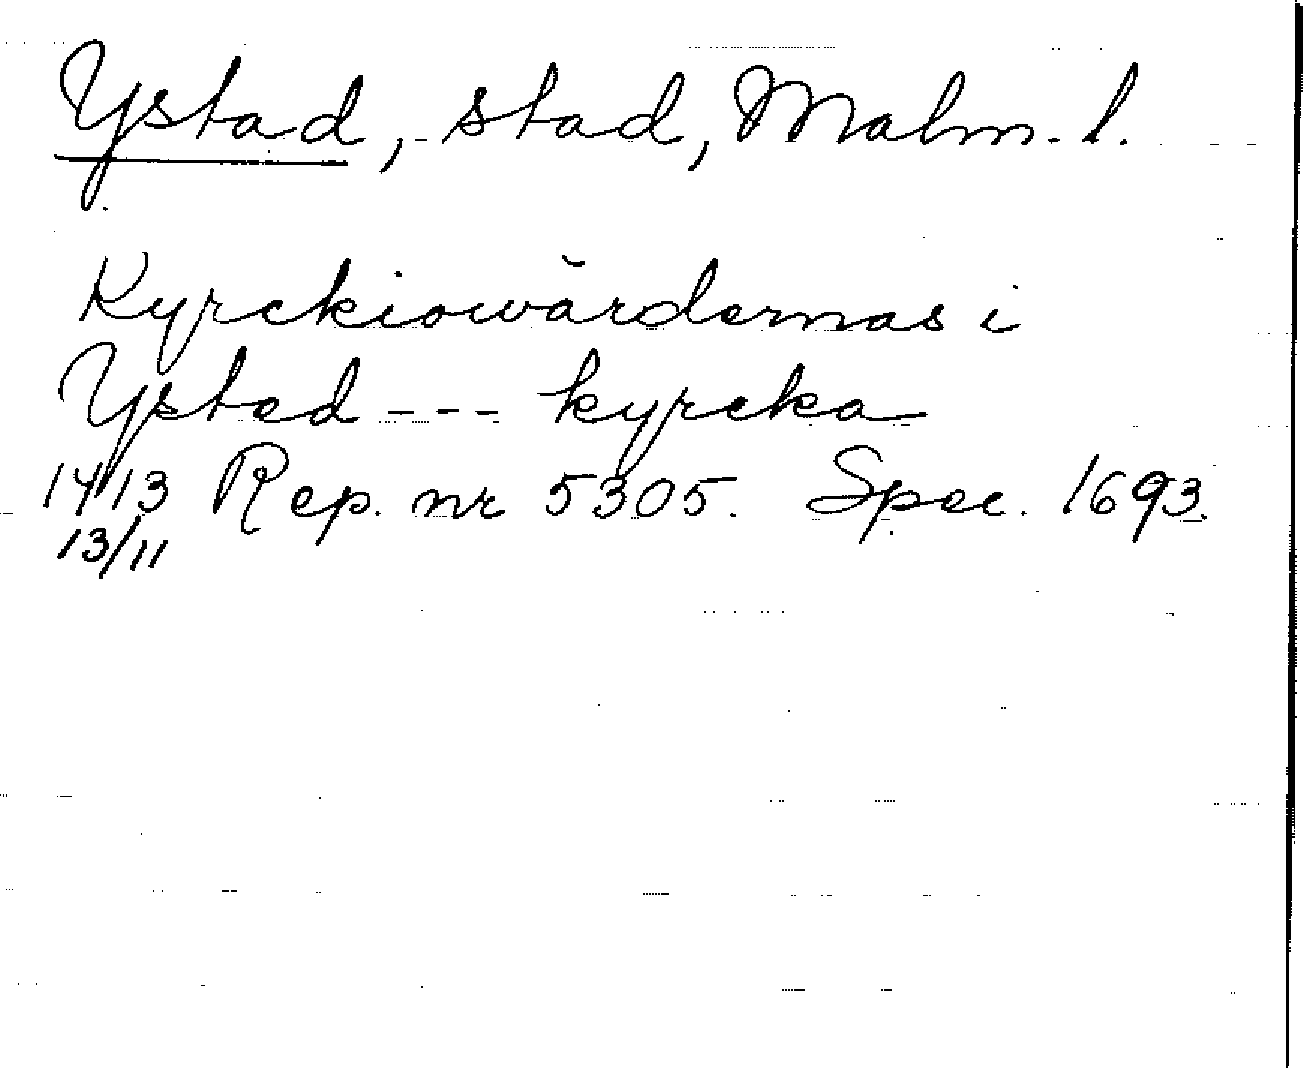 Ystad, stad, Malm. l.
Kyrckiowärdernas i
Ysted --- kyrcka
1413 Rep. nr 5305. Spec. 1693.
13/11